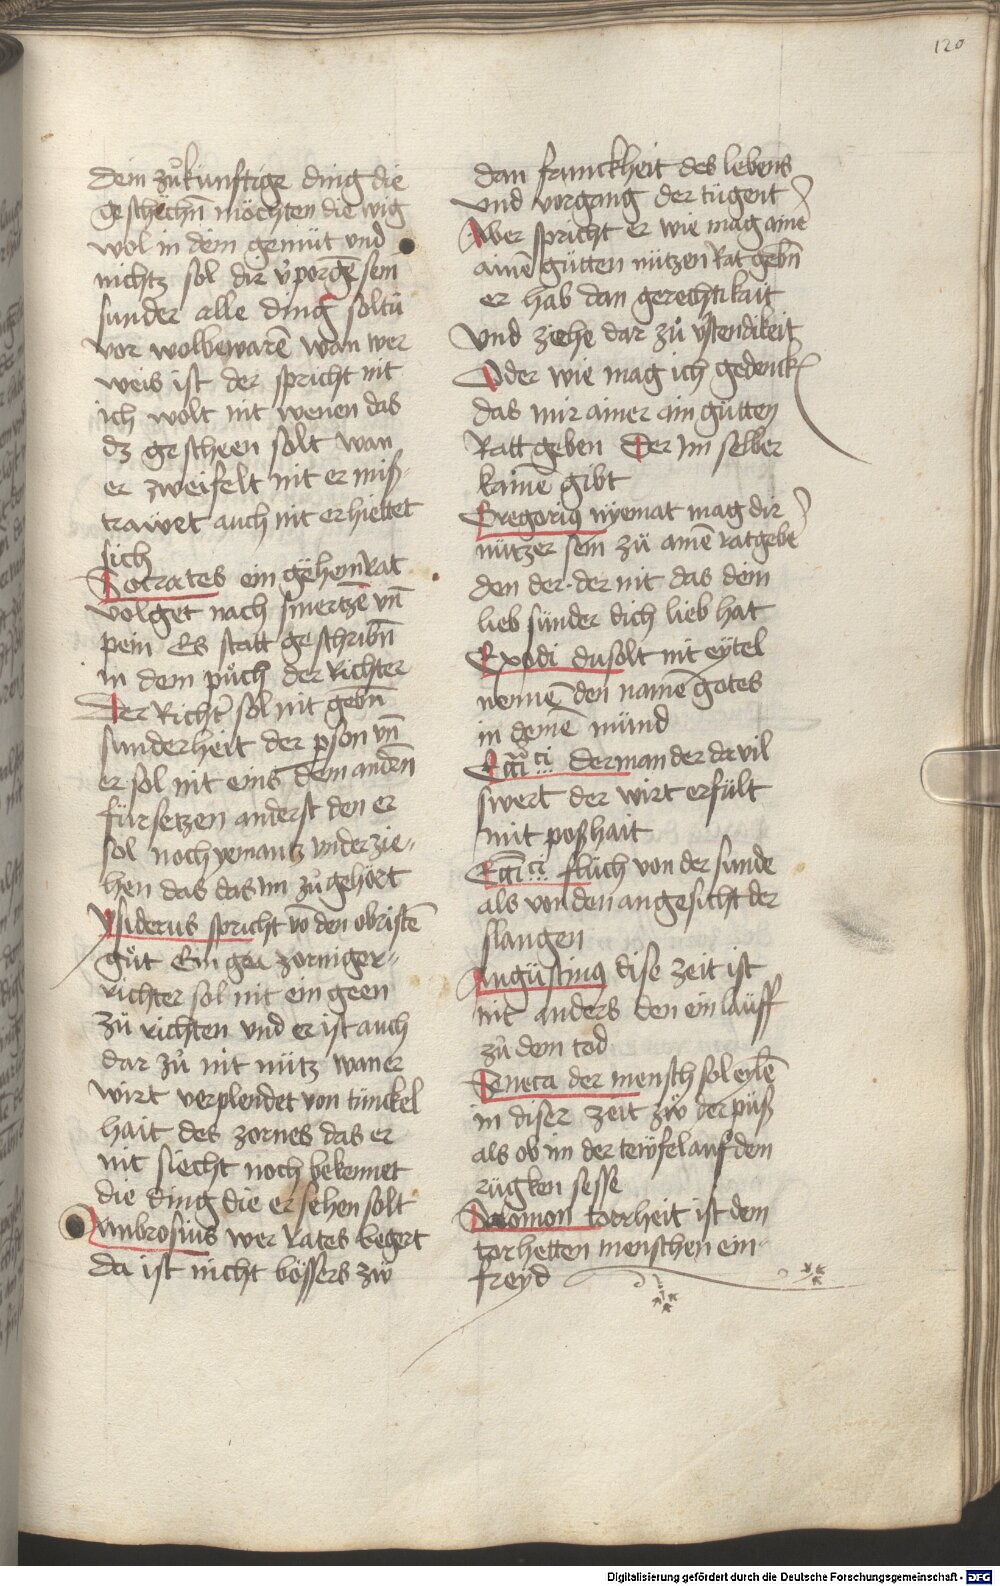 120
dein zů künftige ding die
geschechn̄ möchten die wig
wol in dem gemüt vnd
nichtz sol dir v̓porgē sein
sunder alle ding soltu
vor wolbewarē wan wer
weis ist der spricht nit
ich wolt nit wenen das
dz gescheen solt wan
er zweifelt nit er miß-
trawet auch nit er hieltet
sich
Socrates ein gehem Rat
volget nach smertzē vn̄
pein Es statt geschribn̄
in dem půch der Richter
Der Richt̓ sol nit gebn̄
sunderheit der pson vn̄
er sol nit eins dem andern̄
für setzen anderst den er
sol noch yemantz vnder zie-
hen das das im zů gehört
Ysiderus spricht vō den obristē
gůt Ein zorniger
richter sol nit ein geen
zů richten vnd er ist auch
dar zů nit nütz wan er
wirt verplendet von tunckel
hait des zornes das er
nit siecht noch bekennet
die ding die er sehen solt
Ambrosius wer Rates begert
da ist nicht bössers zw
dan franckheit des lebens
vnd vorgang der tügent
Aber spricht er wie mag aine
ainē gütten nützen Rat gebn̄
er hab dan gerechtikait
vnd ziehe dar zů v̓stendikeit
Oder wie mag ich gedenck
das mir ainer ain gütten
Ratt geben Der im selber
kainē gibt
Gregorius nyemat mag dir
nützer sein zü ainē ratgebē
den der der nit das dein
lieb sünder dich lieb hat
Exodi du solt nit eytel
nennē den namē gotes
in deinē münd
Ecc̄i ci der man der da vil
swert der wirt erfült
mit poßhait
Ecc̄i ci flüch von der sunde
als von den angesicht der
slangen
Augüstinus dise zeit ist
nit anders den ein lauff
zů dem tod
Seneca der mensch sol eylē
in diser zeit zw der püß
als ob im der tewfel auf dem
rügken sesse
Salomon torrheit ist dem
torhetten menschen ein
freyd
Digitalisierung gefördert durch die Deutsche Forschungsgemeinschaft - DFG